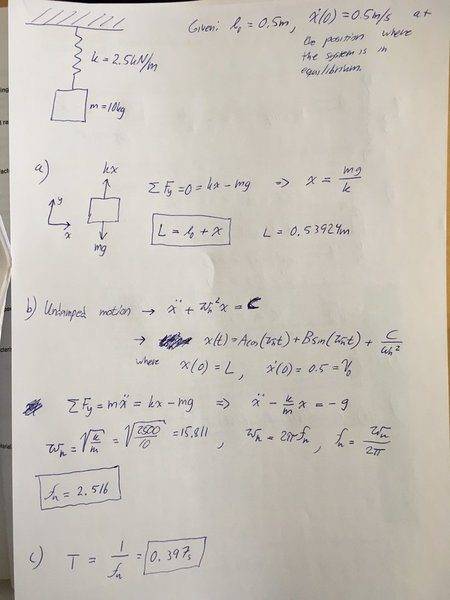 Given: l₀ = 0.5m, ẋ(0) = 0.5m/s at
the position where
the system is in
equilibrium.
k = 2.5kN/m
m = 10kg
a)
kx
y
x
mg
ΣFy = 0 = kx - mg => x = mg/k
L = l₀ + x L = 0.53924m
b) Undamped motion → ẍ + ωn²x = C
→ x(t) = Acos(ωnt) + Bsin(ωnt) + C/ωn²
where x(0) = L, ẋ(0) = 0.5 = V₀
ΣFy = mẍ = kx - mg => ẍ - k/m x = -g
ωn = √(k/m) = √(2500/10) = 15.811, ωn = 2πfn, fn = ωn/2π
fn = 2.516
c) T = 1/fn = 0.397s